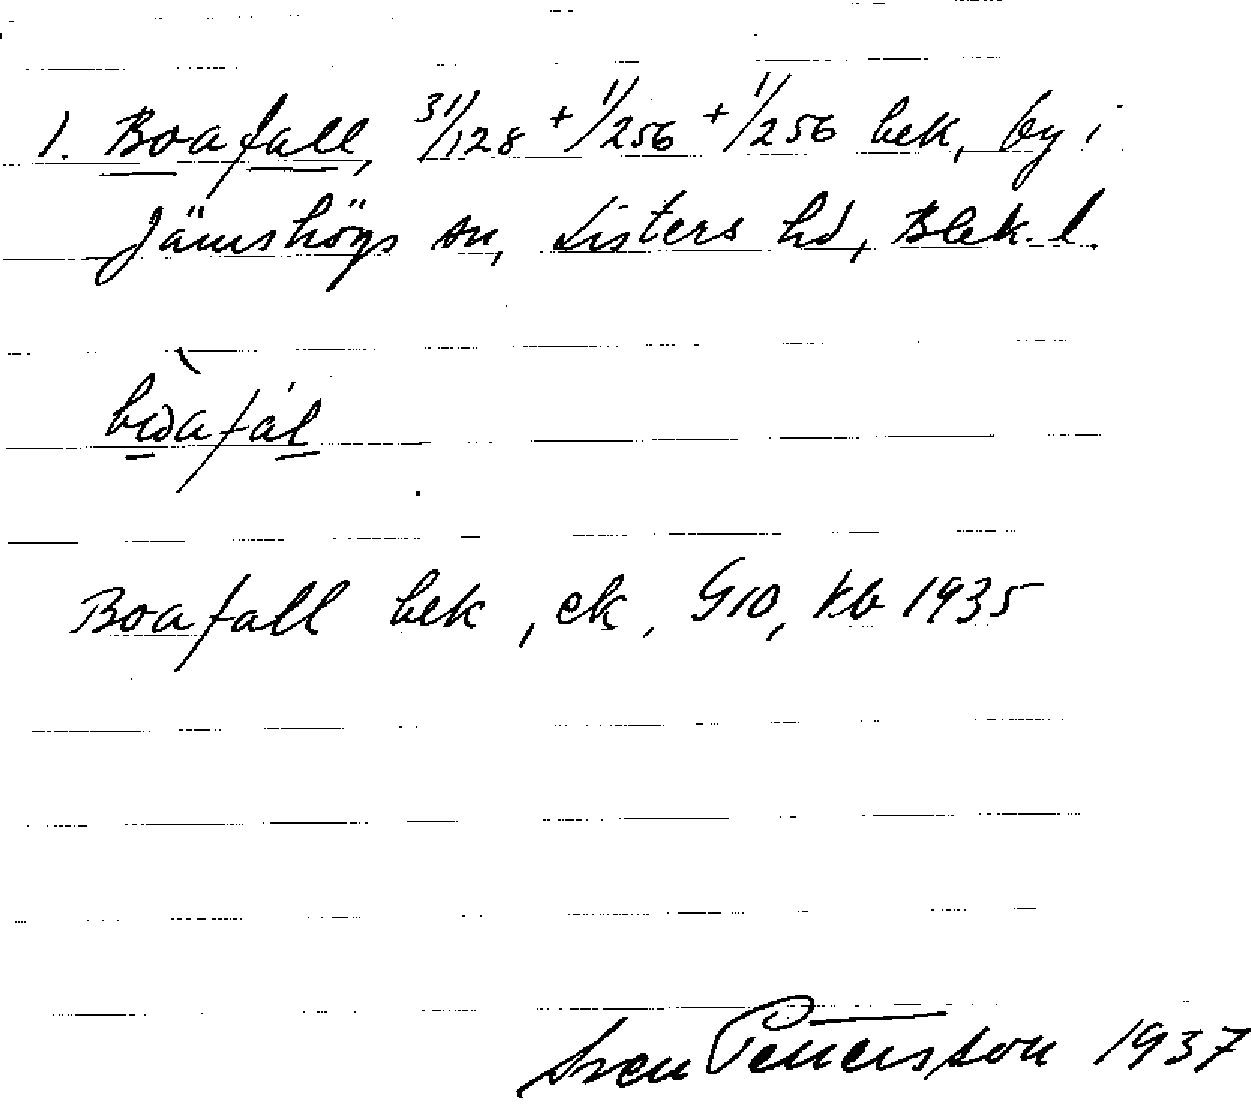 1. Boafall, 31/128 + 1/256 + 1/256 bek, by i
Jämshögs sn, Listers hd, Blek. l.
Boafall bek, ek, G10, Kb 1935
Sven Pettersson 1937